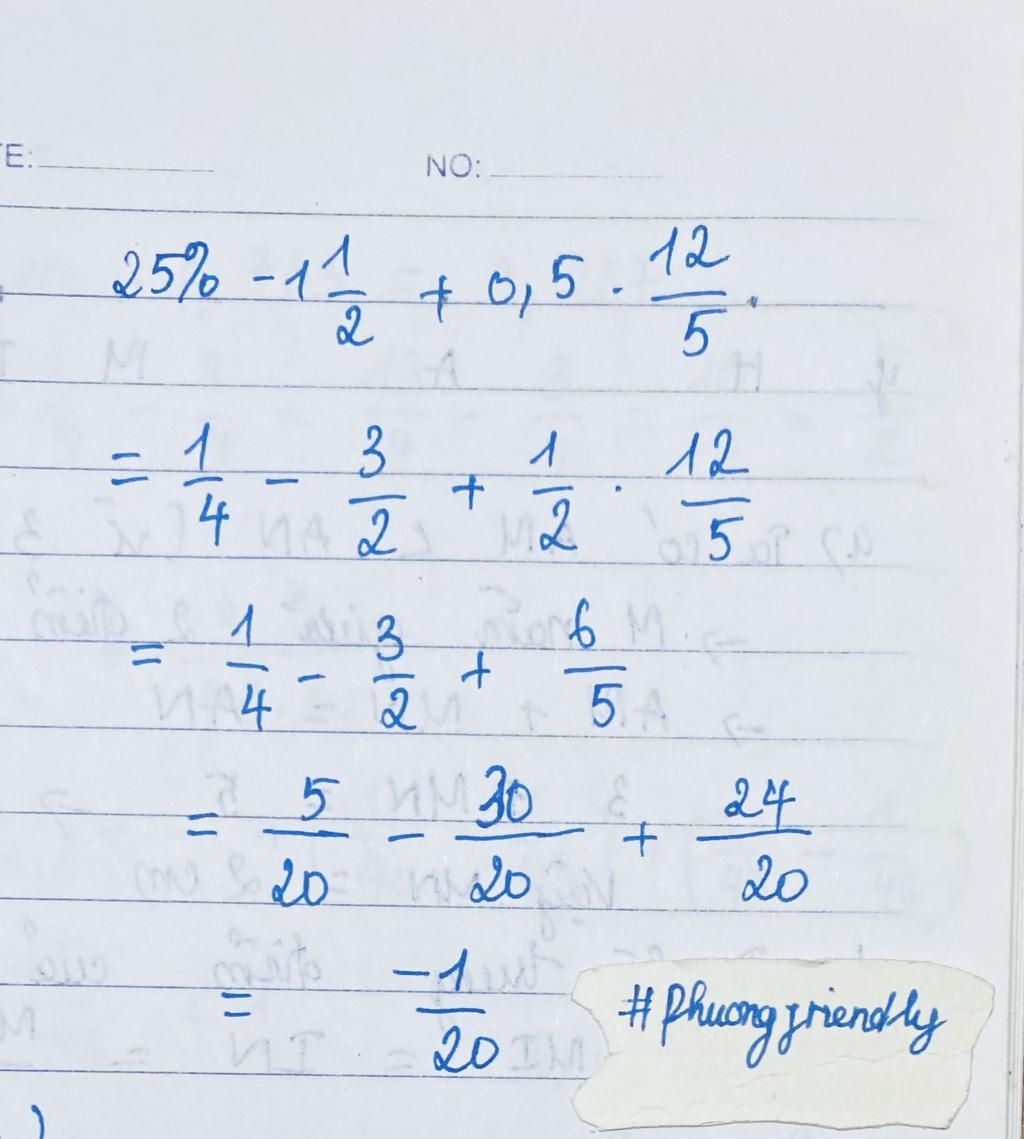 TE: NO:
25% - 1 1/2 + 0,5 . 12/5 .
= 1/4 - 3/2 + 1/2 . 12/5
= 1/4 - 3/2 + 6/5
= 5/20 - 30/20 + 24/20
= -1/20
#Phuongfriendly
)